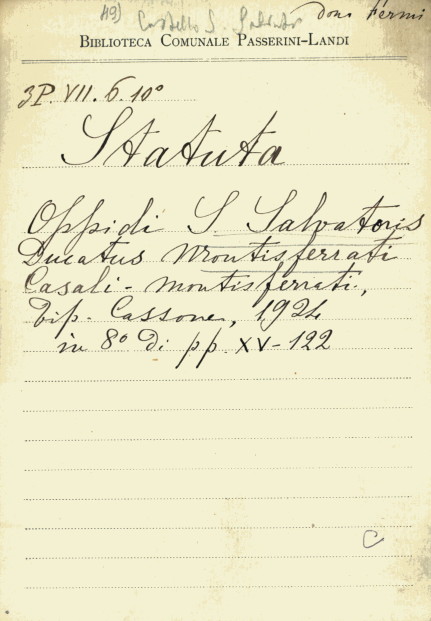 49) Castello S. Salvator dono Fermi
BIBLIOTECA COMUNALE PASSERINI-LANDI
3P. VII. 6. 10º
Statuta
Oppidi S. Salvatoris
Ducatus Montisferrati
Casali - Montisferrati,
Tip. Cassone, 1924
in 8º di pp. XV-122
C